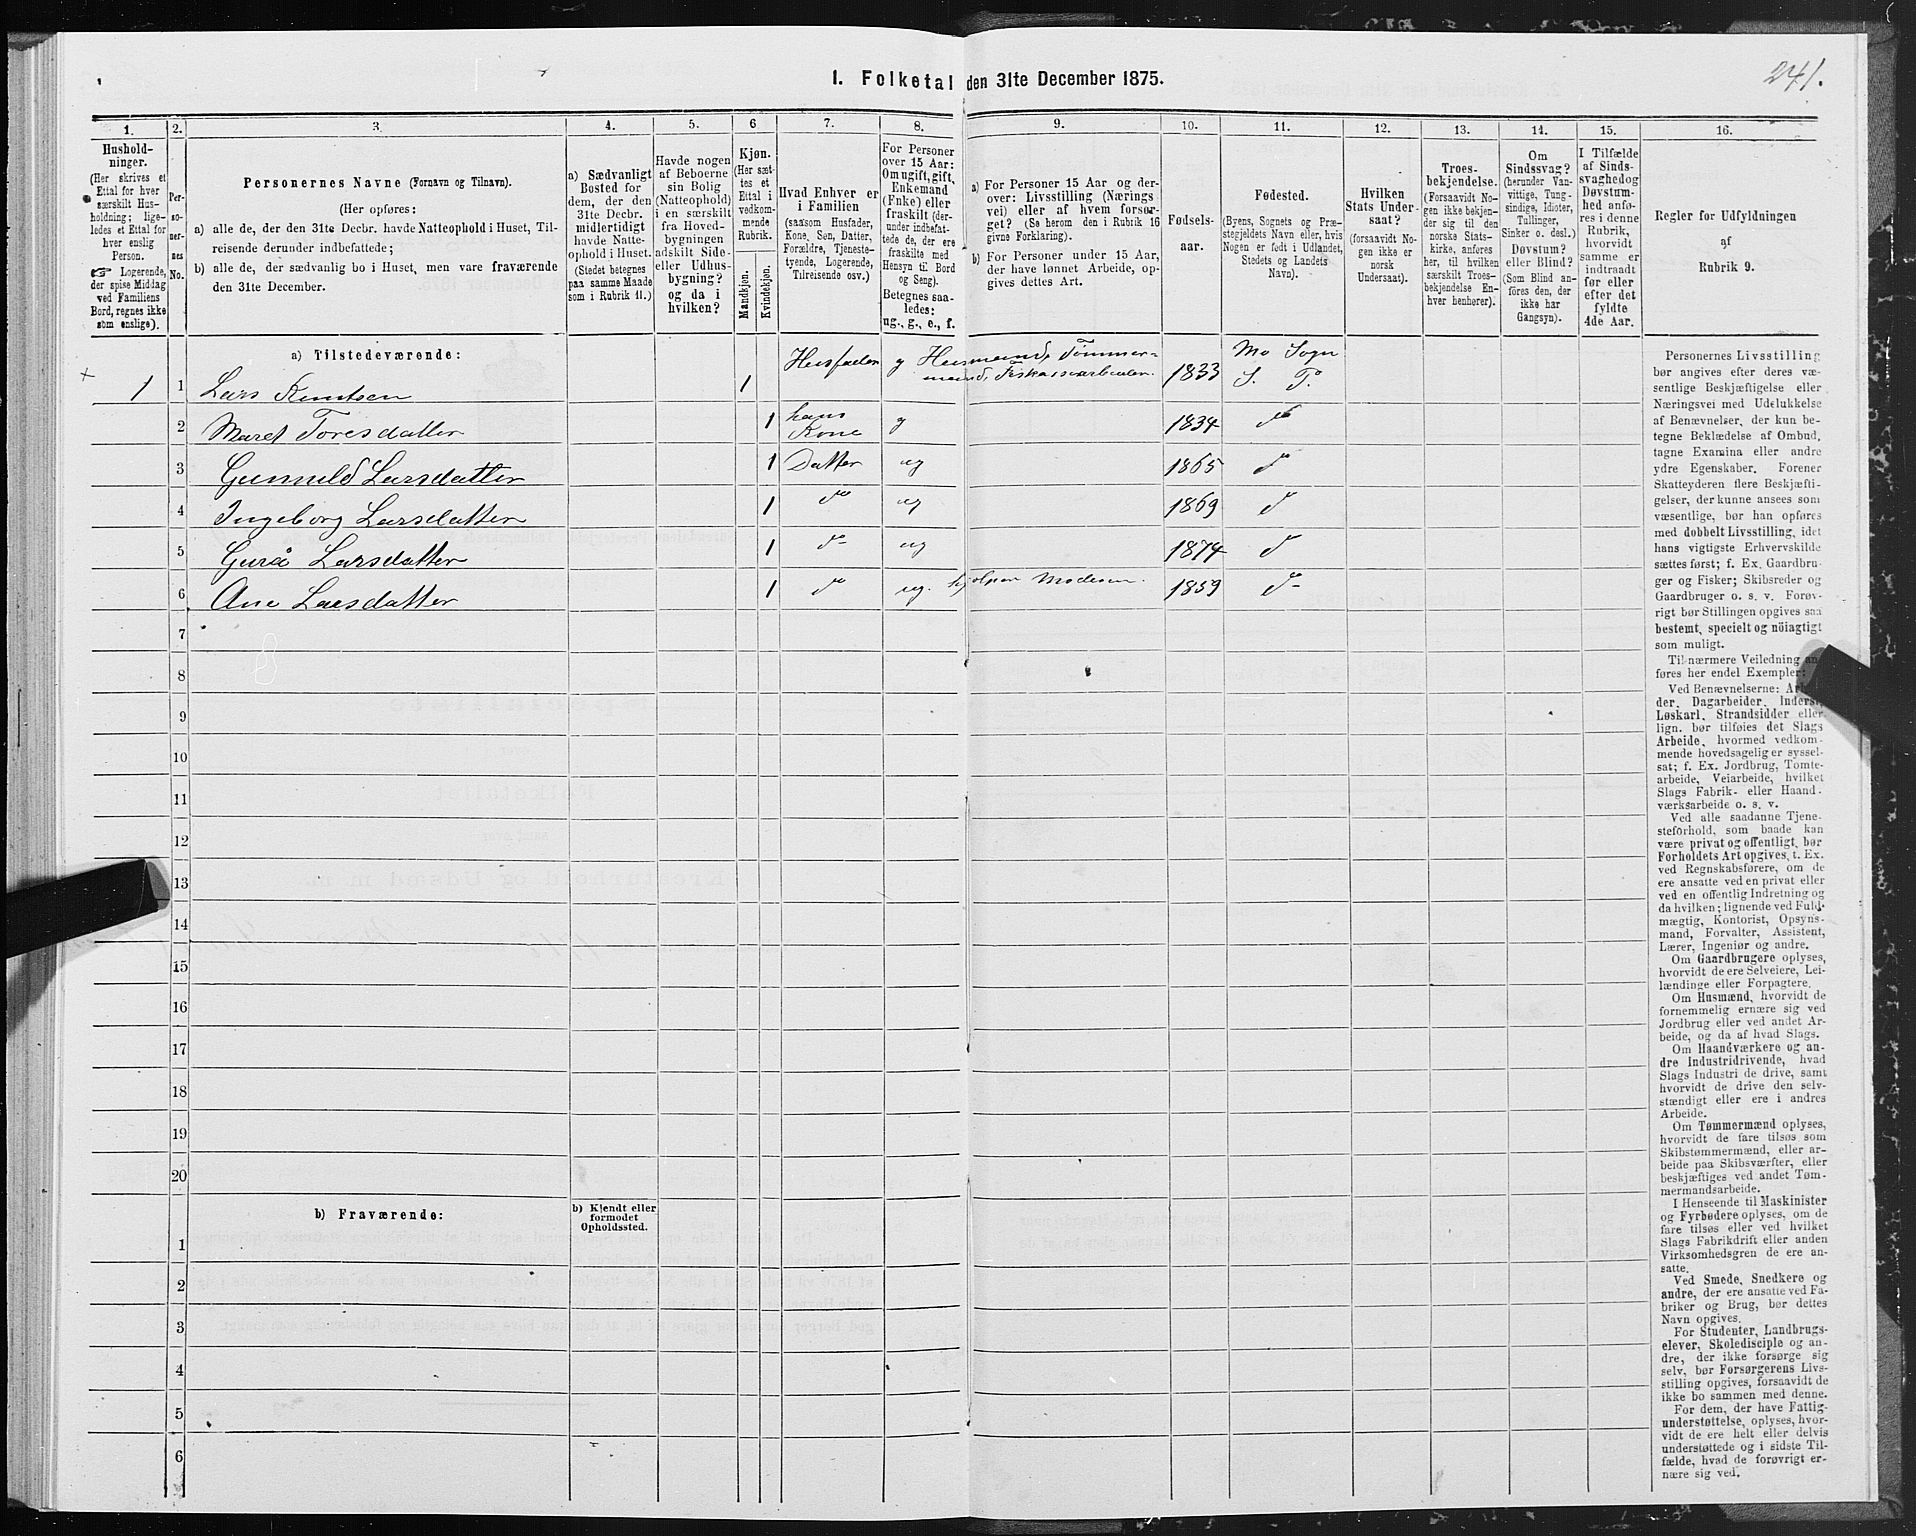 241.
1. Folketal den 31te December 1875.
1. 2. 3. 4. 5. 6 7. 8. 9. 10. 11. 12. 13. 14. 15. 16.
Hushold-
ninger.
(Her skrives et
Ettal for hver
særskilt Hus-
holdning; lige-
ledes et Ettal for
hver enslig
Person.
☞ Logerende,
der spise Middag
ved Familiens
Bord, regnes ikke
som enslige).
Per-
so-
ner-
nes
No.
Personernes Navne (Fornavn og Tilnavn).
(Her opføres:
a) alle de, der den 31te Decbr. havde Natteophold i Huset, Til-
reisende derunder indbefattede;
b) alle de, der sædvanlig bo i Huset, men vare fraværende
den 31te December.
a) Sædvanligt
Bosted for
dem, der den
31te Decbr.
midlertidigt
havde Natte-
ophold i Huset.
(Stedet betegnes
paa samme Maade
som i Rubrik 11.)
Havde nogen
af Beboerne
sin Bolig
(Natteophold)
i en særskilt
fra Hoved-
bygningen
adskilt Side-
eller Udhus-
bygning?
og da i
hvilken?
Kjøn.
(Her sæt-
tes et
Ettal i
vedkom-
mende
Rubrik.
Mandkjøn.
Kvindekjøn.
Hvad Enhver er
i Familien
(saasom Husfader,
Kone, Søn, Datter,
Forældre, Tjeneste-
tyende, Logerende,
Tilreisende osv.)
For Personer
over 15 Aar:
Om ugift, gift,
Enkemand
(Enke) eller
fraskilt (der-
under indbefat-
tede de, der ere
fraskilte med
Hensyn til Bord
og Seng).
Betegnes saa-
ledes:
ug., g., e., f.
a) For Personer 15 Aar og der-
over: Livsstilling (Nærings
vei) eller af hvem forsør-
get? (Se herom den i Rubrik 16
givne Forklaring).
b) For Personer under 15 Aar,
der have lønnet Arbeide, op-
gives dettes Art.
Fødsels-
aar.
Fødested.
(Byens, Sognets og Præ-
stegjeldets Navn eller, hvis
Nogen er født i Udlandet,
Stedets og Landets
Navn).
Hvilken
Stats Under-
saat?
(forsaavidt No-
gen ikke er
norsk
Undersaat).
Troes-
bekjendelse.
(Forsaavidt No-
gen ikke bekjen-
der sig til den
norske Stats-
kirke, anføres
her, til hvilken
særskilt Troes-
bekjendelse En-
hver henhører).
Om
Sindssvag?
(herunder Van-
vittige, Tung-
sindige, Idioter,
Tullinger,
Sinker o. desl.)
Døvstum?
eller Blind?
(Som Blind an-
føres den, der
ikke har
Gangsyn).
I Tilfælde
af Sinds-
svaghed og
Døvstum-
hed anfø-
res i denne
Rubrik,
hvorvidt
samme er
indtraadt
før eller
efter det
fyldte
4de Aar.
Regler for Udfyldningen
af
Rubrik 9.
a) Tilstedeværende:
1 1 Lars Knutsen 1 Husfader g Husmand, Tømmer-
mand, Fiskassearbeider. 1833 Mo Sogn
S. P.
2 Maret Toresdatter 1 hans
Kone g 1834 do
3 Gunnild Larsdatter 1 Datter ug 1865 do
4 Ingeborg Larsdatter 1 do ug 1869 d
5 Gurå Larsdatter 1 do ug 1874 d
6 Ane Larsdatter 1 do ug. hjelper Moderen. 1859 do
7
8
9
10
11
12
13
14
15
16
17
18
19
20
b) Fraværende:
b) Kjendt eller
formodet
Opholdssted.
1
2
3
4
5
6
Personernes Livsstilling
bør angives efter deres væ-
sentlige Beskjæftigelse eller
Næringsvei med Udelukkelse
af Benævnelser, der kun be-
tegne Beklædelse af Ombud,
tagne Examina eller andre
ydre Egenskaber. Forener
Skatteyderen flere Beskjæfti-
gelser, der kunne ansees som
væsentlige, bør han opføres
med dobbelt Livsstilling, idet
hans vigtigste Erhvervskilde
sættes først; f. Ex. Gaardbru-
ger og Fisker; Skibsreder og
Gaardbruger o. s. v. Forøv-
rigt bør Stillingen opgives saa
bestemt, specielt og nöiagtigt
som muligt.
Til nærmere Veiledning an-
føres her endel Exempler:
Ved Benævnelserne: Arbei-
der, Dagarbeider, Inderst,
Løskarl, Strandsidder eller
lign. bør tilføies det Slags
Arbeide, hvormed vedkom-
mende hovedsagelig er syssel-
sat; f. Ex. Jordbrug, Tomte-
arbeide, Veiarbeide, hvilket
Slags Fabrik- eller Haand-
værksarbeide o. s. v.
Ved alle saadanne Tjene-
steforhold, som baade kan
være privat og offentligt, bør
Forholdets Art opgives, t. Ex.
ved Regnskabsførere, om de
ere ansatte ved en privat eller
ved en offentlig Indretning og
da hvilken; lignende ved Fuld-
mægtig, Kontorist, Opsyns-
mand, Forvalter, Assistent,
Lærer, Ingeniør og andre.
Om Gaardbrugere oplyses,
hvorvidt de ere Selveiere, Lei-
lændinge eller Forpagtere.
Om Husmænd, hvorvidt de
fornemmelig ernære sig ved
Jordbrug eller ved andet Ar-
beide, og da af hvad Slags.
Om Haandværkere og an-
dre Industridrivende, hvad
Slags Industri de drive, samt
hvorvidt de drive den selv-
stændigt eller ere i andres
Arbeide.
Om Tømmermænd oplyses,
hvorvidt de fare tilsøs som
Skibstømmermænd, eller ar-
beide paa Skibsværfter, eller
beskjæftiges ved andet Tøm-
mermandsarbeide.
I Henseende til Maskinister
og Fyrbødere oplyses, om de
fare tilsøs eller ved hvilket
Slags Fabrikdrift eller anden
Virksomhedsgren de ere an-
satte.
Ved Smede, Snedkere og
andre, der ere ansatte ved Fa-
briker og Brug, bør dettes
Navn opgives.
For Studenter, Landbrugs-
elever, Skoledisciple og an-
dre, der ikke forsørge sig
selv, bør Forsørgerens Livs-
stilling opgives, forsaavidt de
ikke bo sammen med denne.
For dem, der have Fattig-
understøttelse, oplyses, hvor-
vidt de ere helt eller delvis
understøttede og i sidste Til-
fælde, hvad de forøvrigt er-
nære sig ved.